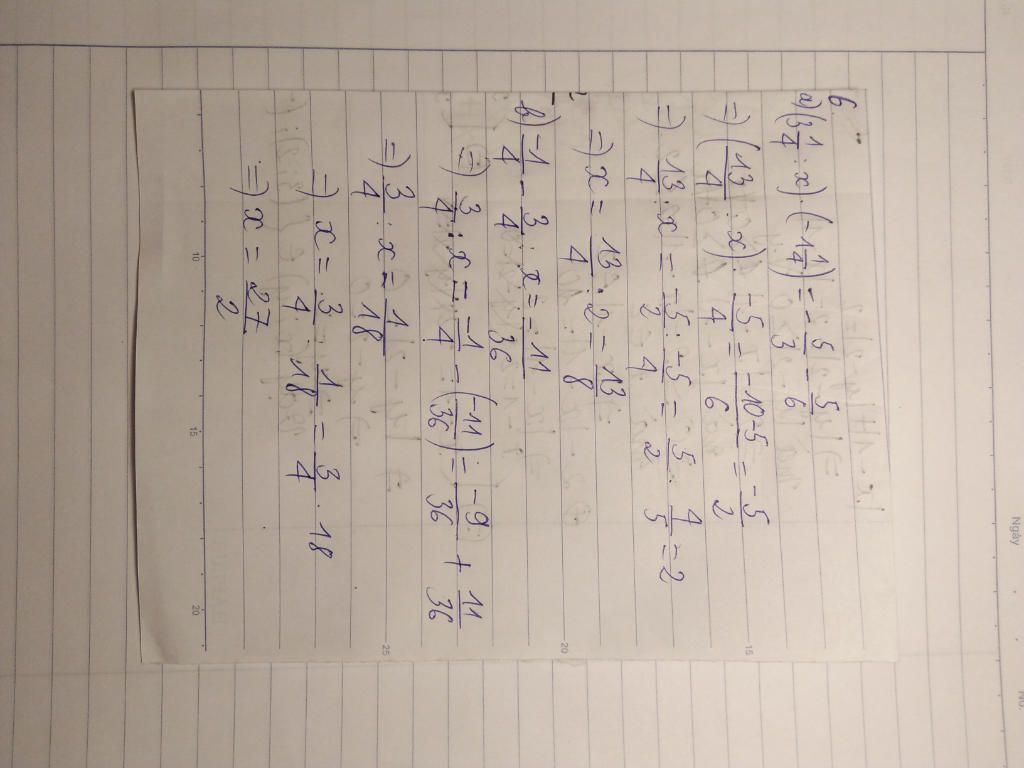 6.
a) (3 1/4 : x) . (-1 1/4) = - 5/3 - 5/6
=) (13/4 : x) . -5/4 = -10-5/6 = -5/2
=) 13/4 : x = -5/2 : -5/4 = 5/2 . 4/5 = 2
=) x = 13/4 : 2 = 13/8
b) -1/4 - 3/4 : x = -11/36
=) 3/4 : x = -1/4 - (-11/36) = -9/36 + 11/36
=) 3/4 : x = 1/18
=) x = 3/4 : 1/18 = 3/4 . 18
=) x = 27/2
Ngày
No.
15
20
25
10
15
20